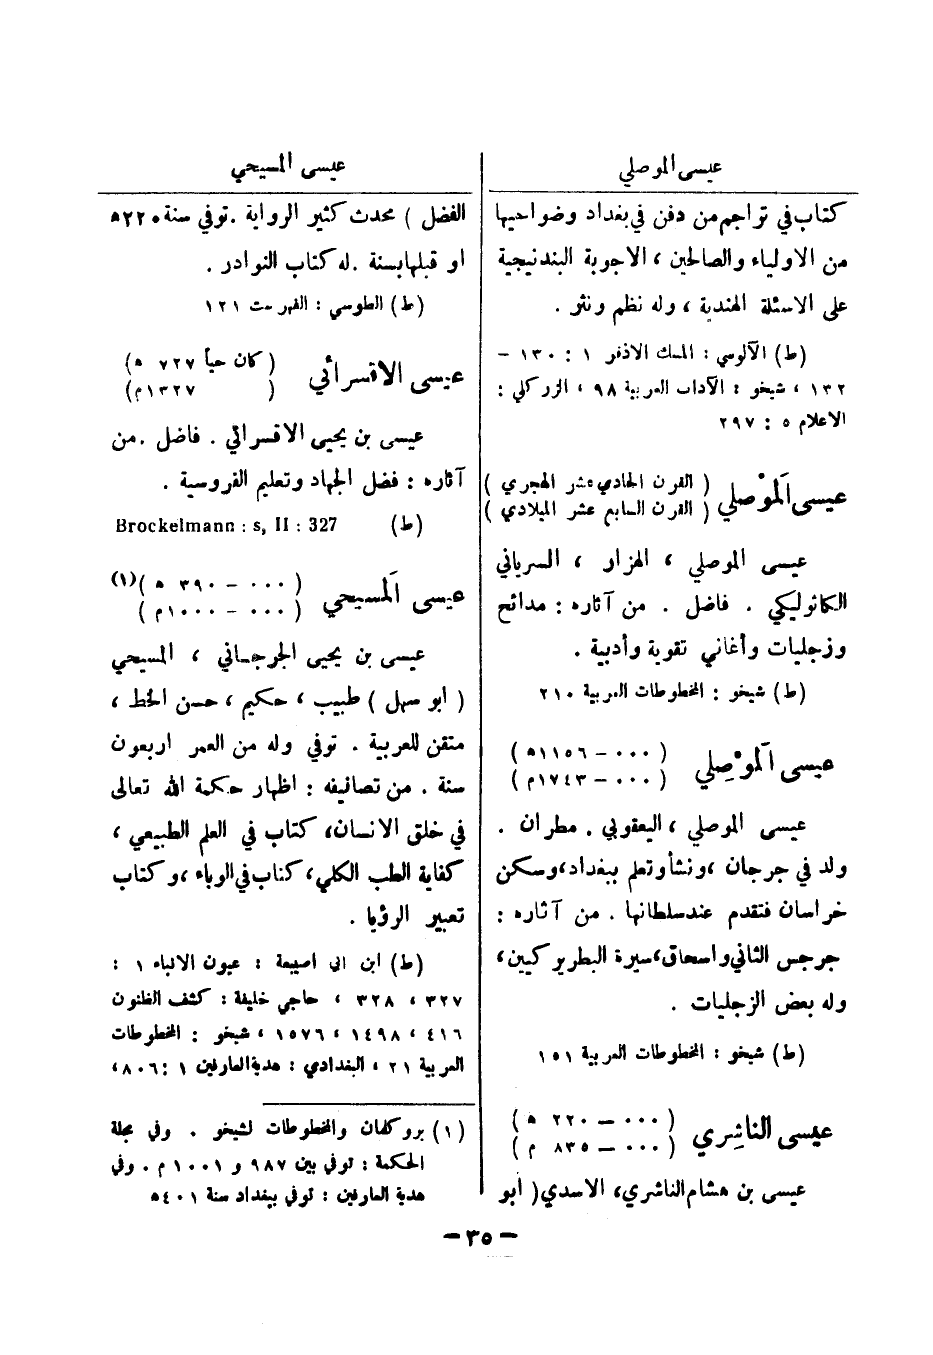 عيسى الموصلي
كتاب في تراجم من دفن في بغداد وضواحيها
من الاولياء والصالحين ، الاجوبة البندنيجية
على الاسئلة الهندية ، وله نظم ونثر .
(ط) الآلوسي : المسك الاذفر ١ : ١٣٠ –
١٣٢ ، شيخو : الآداب العربية ٩٨ ، الزركلي :
الاعلام ٥ : ٢٩٧
عيسى المَوْصلي ( القرن الحادي عشر الهجري )
( القرن السابع عشر الميلادي )
عيسى الموصلي ، الهزار ، السرياني
الكاثوليكي . فاضل . من آثاره : مدائح
وزجليات وأغاني تقوية وأدبية .
(ط) شيخو : المخطوطات العربية ٢١٠
عيسى المَوْصِلي ( ٠٠٠ – ١١٥٦ ه )
( ٠٠٠ – ١٧٤٣ م )
عيسى الموصلي ، اليعقوبي . مطران .
ولد في جرجان ، ونشأ وتعلم ببغداد ، وسكن
خراسان فتقدم عند سلطانها . من آثاره :
جرجس الثاني واسحاق ، سيرة البطريركيين ،
وله بعض الزجليات .
(ط) شيخو : المخطوطات العربية ١٥١
عيسى الناشِري ( ٠٠٠ – ٢٢٠ ه )
( ٠٠٠ – ٨٣٥ م )
عيسى بن هشام الناشري ، الاسدي ( ابو
عيسى المسيحي
الفضل ) محدث كثير الرواية . توفي سنة ٢٢٠ ه
او قبلها بسنة . له كتاب النوادر .
(ط) الطوسي : الفهرست ١٢١
عيسى الاقسرائي ( كان حياً ٧٢٧ ه )
( ١٣٢٧ م )
عيسى بن يحيى الاقسرائي . فاضل . من
آثاره : فضل الجهاد وتعليم الفروسية .
(ط) Brockelmann : s, II : 327
عيسى المَسيحي ( ٠٠٠ – ٣٩٠ ه ) (١)
( ٠٠٠ – ١٠٠٠ م )
عيسى بن يحيى الجرجاني ، المسيحي
( ابو سهل ) طبيب ، حكيم ، حسن الخط ،
متقن للعربية . توفي وله من العمر اربعون
سنة . من تصانيفه : اظهار حكمة الله تعالى
في خلق الانسان ، كتاب في العلم الطبيعي ،
كفاية الطب الكلي ، كتاب في الوباء ، وكتاب
تعبير الرؤيا .
(ط) ابن ابي اصيبعة : عيون الانباء ١ :
٣٢٧ ، ٣٢٨ ، حاجي خليفة : كشف الظنون
٤١٦ ، ١٤٩٨ ، ١٥٧٦ ، شيخو : المخطوطات
العربية ٢١ ، البغدادي : هدية العارفين ١ : ٨٠٦ ،
(١) بروكلمان والمخطوطات لشيخو . وفي مجلة
الحكمة : توفي بين ٩٨٧ و ١٠٠١ م . وفي
هدية العارفين : توفي ببغداد سنة ٤٠١ ه
– ٣٥ –